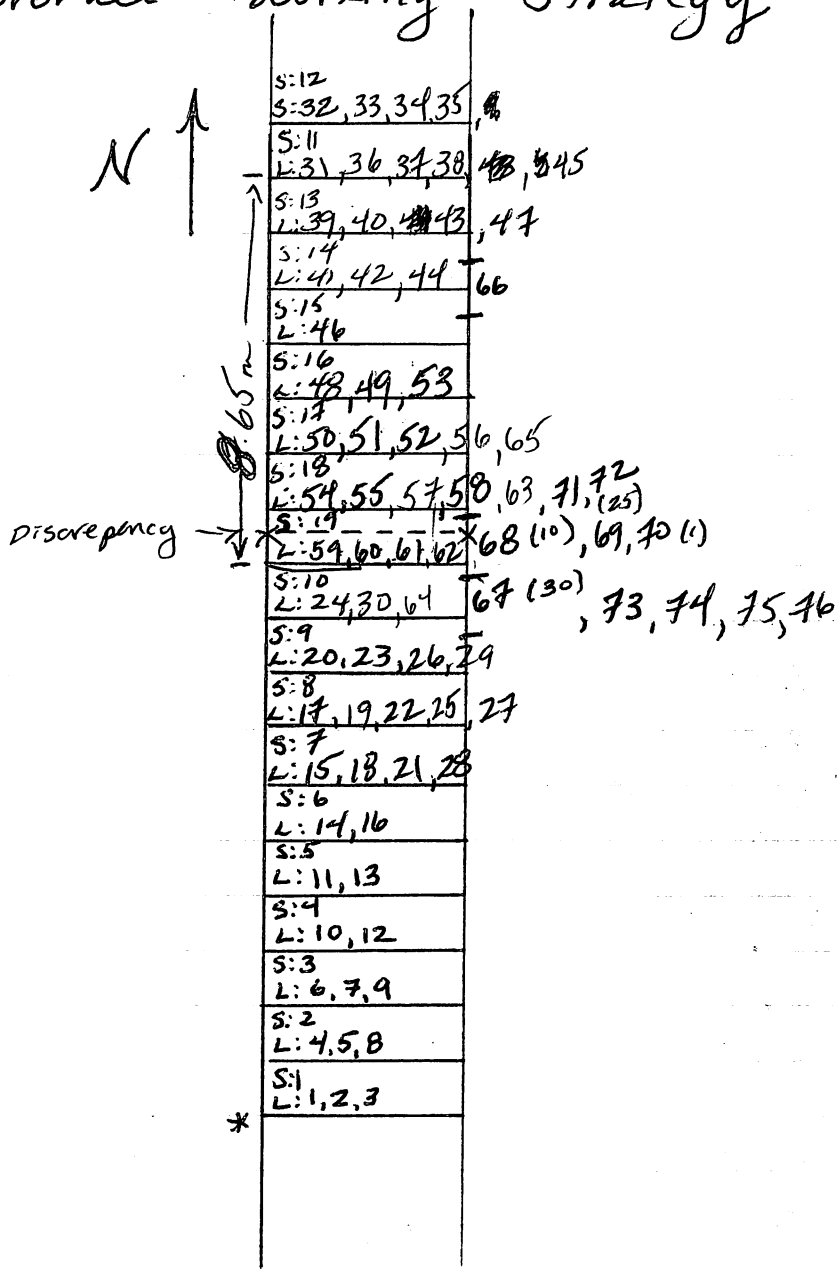 Strategy
S:12
S:32, 33, 34, 35,
N
S:11
L:31, 36, 37, 38, 45
S:13
L:39, 40, 43, 47
S:14
L:41, 42, 44
66
S:15
L:46
S:16
L:48, 49, 53
8.65m
S:17
L:50, 51, 52, 56, 65
S:18
L:54, 55, 57, 58, 63, 71, 72 (25)
Discrepancy
S:19
L:59, 60, 61, 62 68 (10), 69, 70 (1)
S:10
L:24, 30, 64 67 (30), 73, 74, 75, 76
S:9
L:20, 23, 26, 29
S:8
L:17, 19, 22, 25, 27
S:7
L:15, 18, 21, 28
S:6
L:14, 16
S:5
L:11, 13
S:4
L:10, 12
S:3
L:6, 7, 9
S:2
L:4, 5, 8
S:1
L:1, 2, 3
*